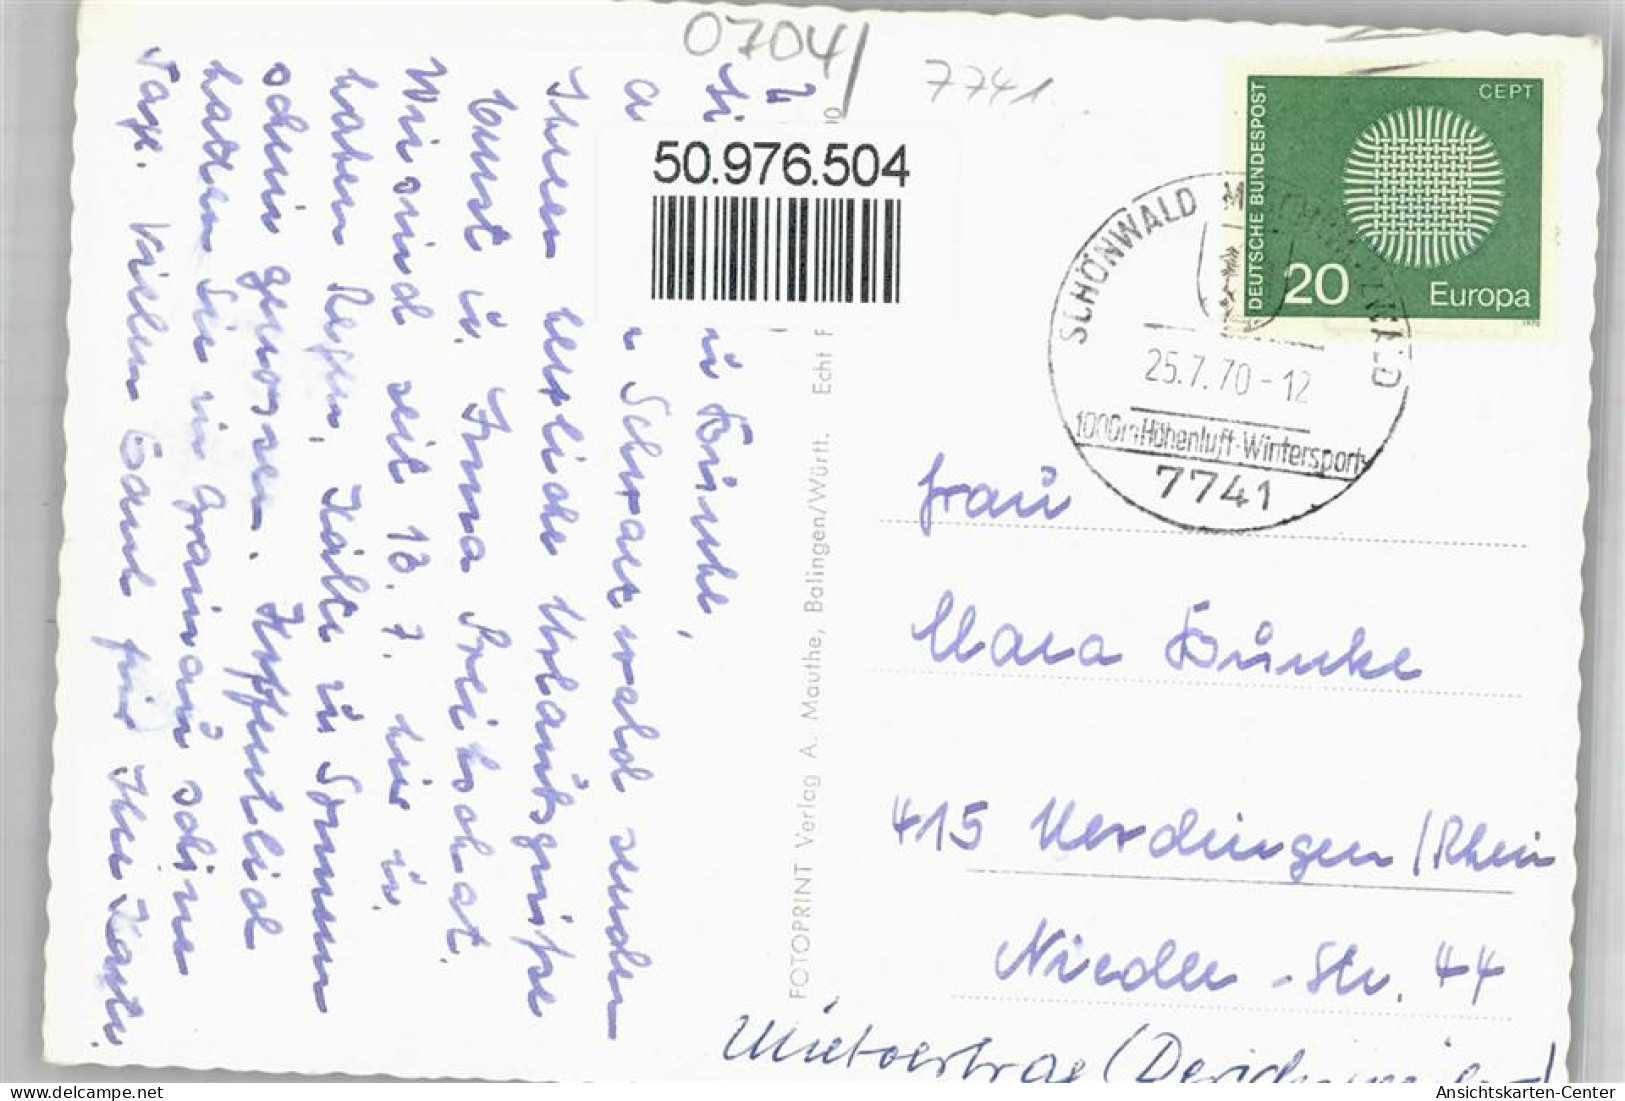 0704/
7741
50.976.504
DEUTSCHE BUNDESPOST
CEPT
20
Europa
1970
SCHÖNWALD
25.7.70-12
1000m Höhenluft-Wintersport
7741
Frau
Bünke
415 Uerdingen/Rhein
Nieder-Str. 44
Mietvertrag
FOTOPRINT Verlag A. Mauthe, Balingen/Württ. Echt F
Schwarzwald senden
Ihnen herzliche Urlaubsgrüße
Kurt u. Irma
Wir sind seit 13.7. hier u.
haben Regen, Kälte u. Sonnen
schein genossen. Hoffentlich
hatten Sie in Grainau schöne
Tage. Vielen Dank für Ihre Karte.
delcampe.net
Ansichtskarten-Center